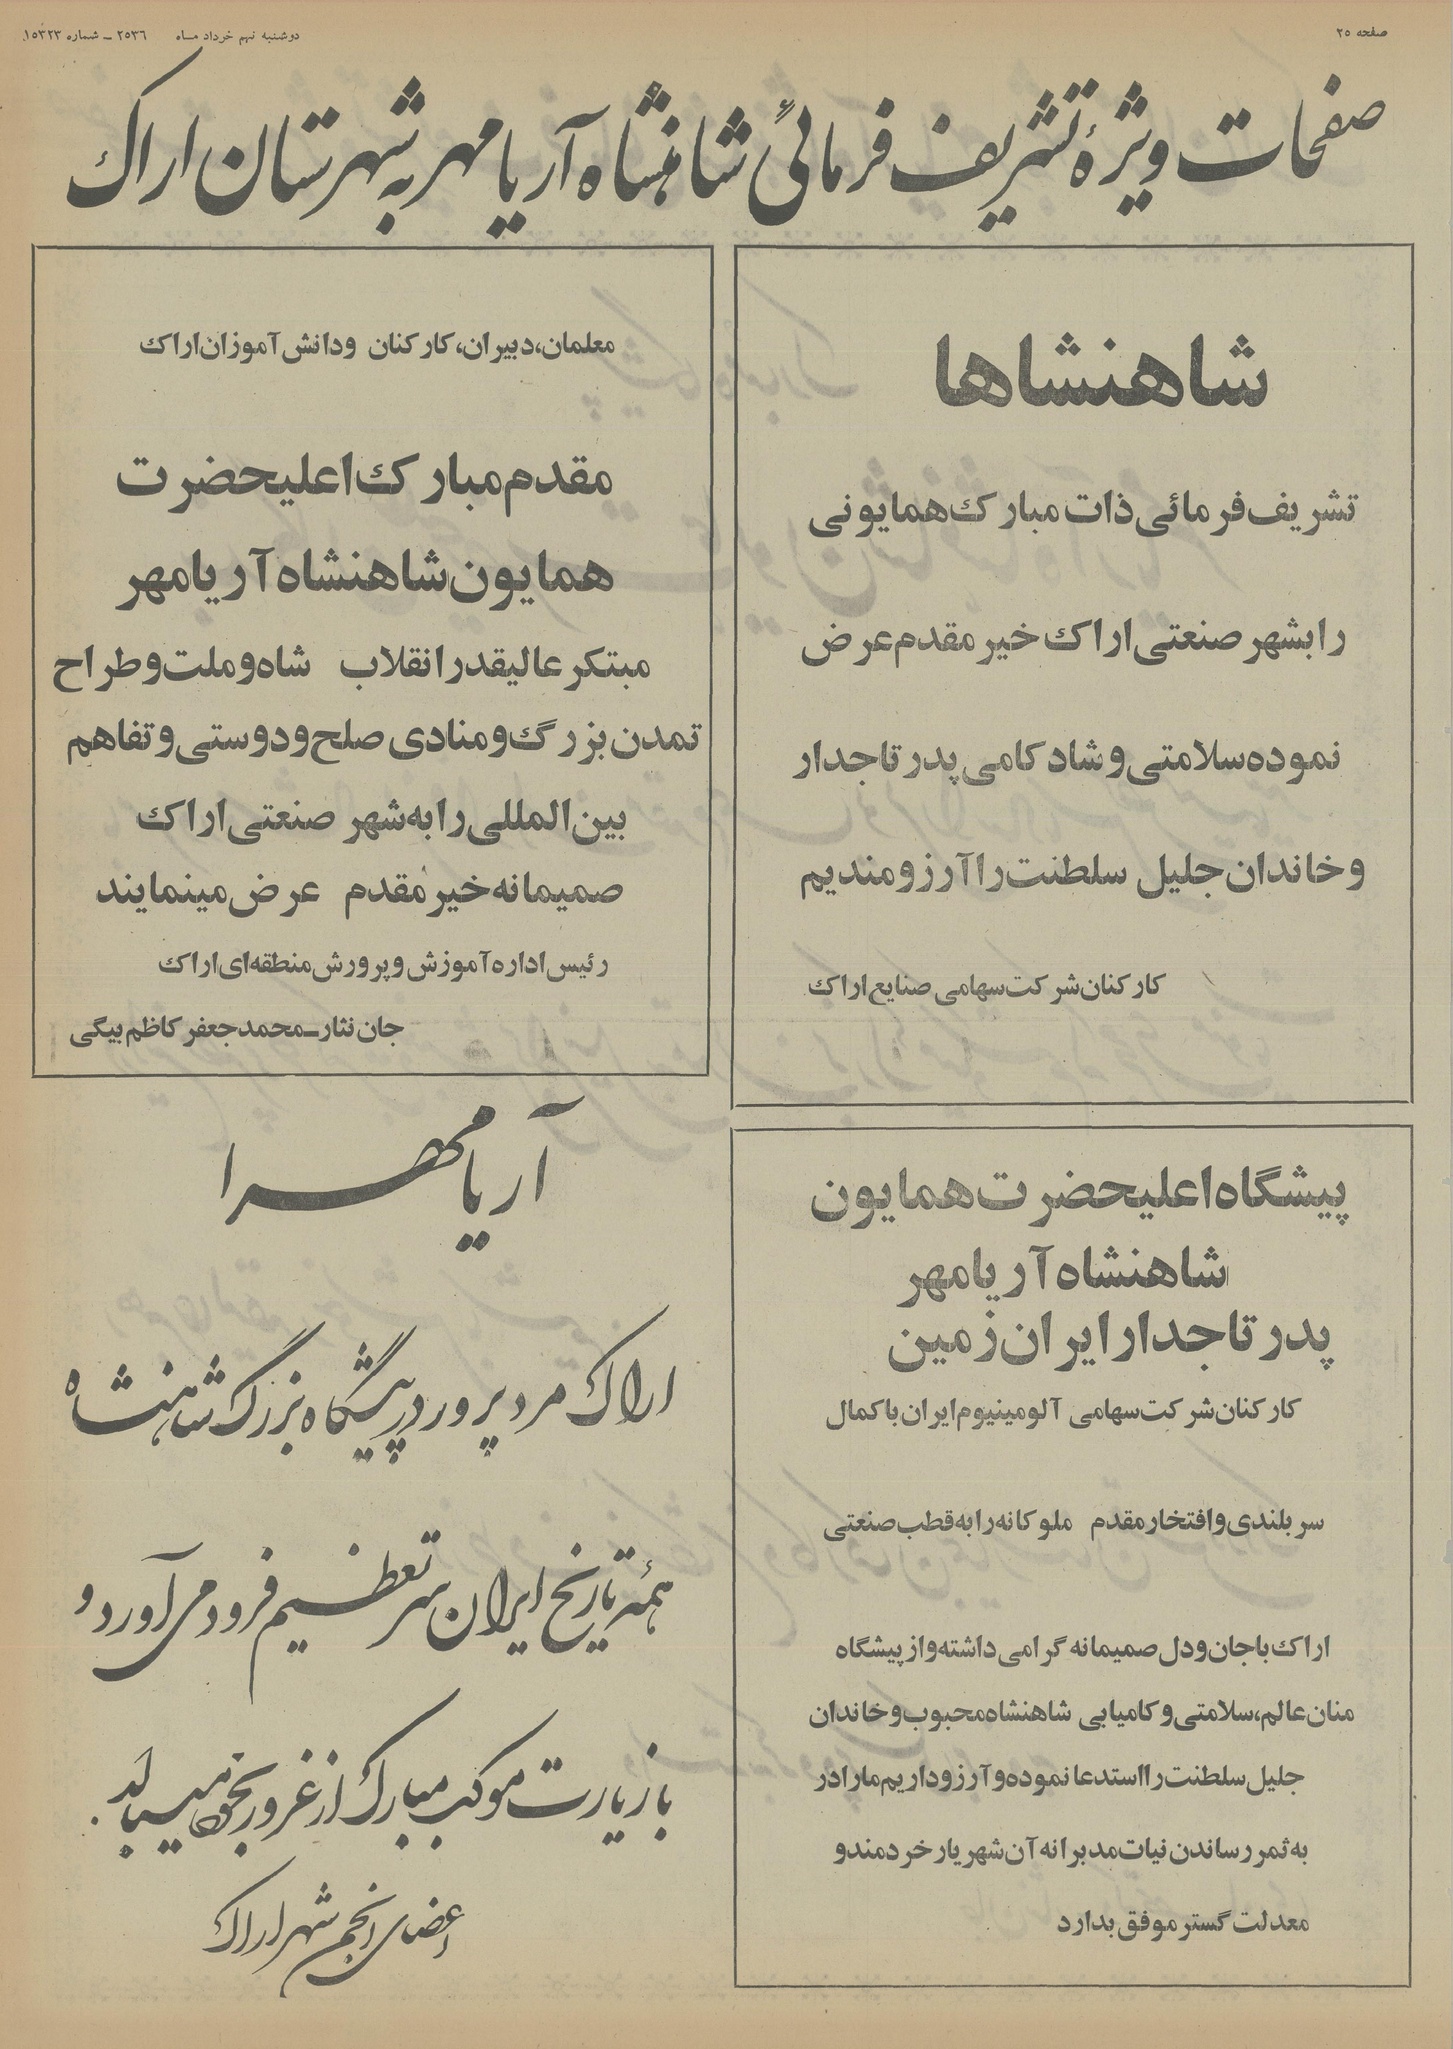 صفحه ۲۵
دوشنبه نهم خرداد مـاه ۲۵۳۶ ـ شماره ۱۵۳۲۳
صفحات ویژهٔ تشریف فرمائی شاهنشاه آریامهر به شهرستان اراک
شاهنشاها
تشریف‌فرمائی ذات مبارک همایونی
را بشهر صنعتی اراک خیر مقدم عرض
نموده سلامتی و شادکامی پدر تاجدار
و خاندان جلیل سلطنت را آرزومندیم
کارکنان شرکت سهامی صنایع اراک
معلمان، دبیران، کارکنان و دانش آموزان اراک
مقدم مبارک اعلیحضرت
همایون شاهنشاه آریامهر
مبتکر عالیقدر انقلاب شاه و ملت و طراح
تمدن بزرگ و منادی صلح و دوستی و تفاهم
بین‌المللی را به شهر صنعتی اراک
صمیمانه خیر مقدم عرض مینمایند
رئیس اداره آموزش و پرورش منطقه‌ای اراک
جان نثار ـ محمد جعفر کاظم بیگی
پیشگاه اعلیحضرت همایون
شاهنشاه آریامهر
پدر تاجدار ایران زمین
کارکنان شرکت سهامی آلومینیوم ایران با کمال
سربلندی و افتخار مقدم ملوکانه را به قطب صنعتی
اراک با جان و دل صمیمانه گرامی داشته و از پیشگاه
منان عالم، سلامتی و کامیابی شاهنشاه محبوب و خاندان
جلیل سلطنت را استدعا نموده و آرزو داریم ما را در
به ثمر رساندن نیات مدبرانه آن شهریار خردمند و
معدلت گستر موفق بدارد
آریامهرا
اراک مرد پرور در پیشگاه بزرگ شاهنشاه
همهٔ تاریخ ایران سر تعظیم فرود می‌آورد و
با زیارت موکب مبارک از غرور بخود میبالد.
اعضای انجمن شهر اراک